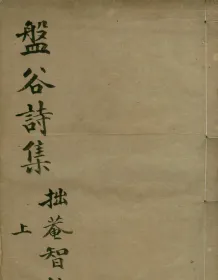 盤谷詩集
拙菴智
上